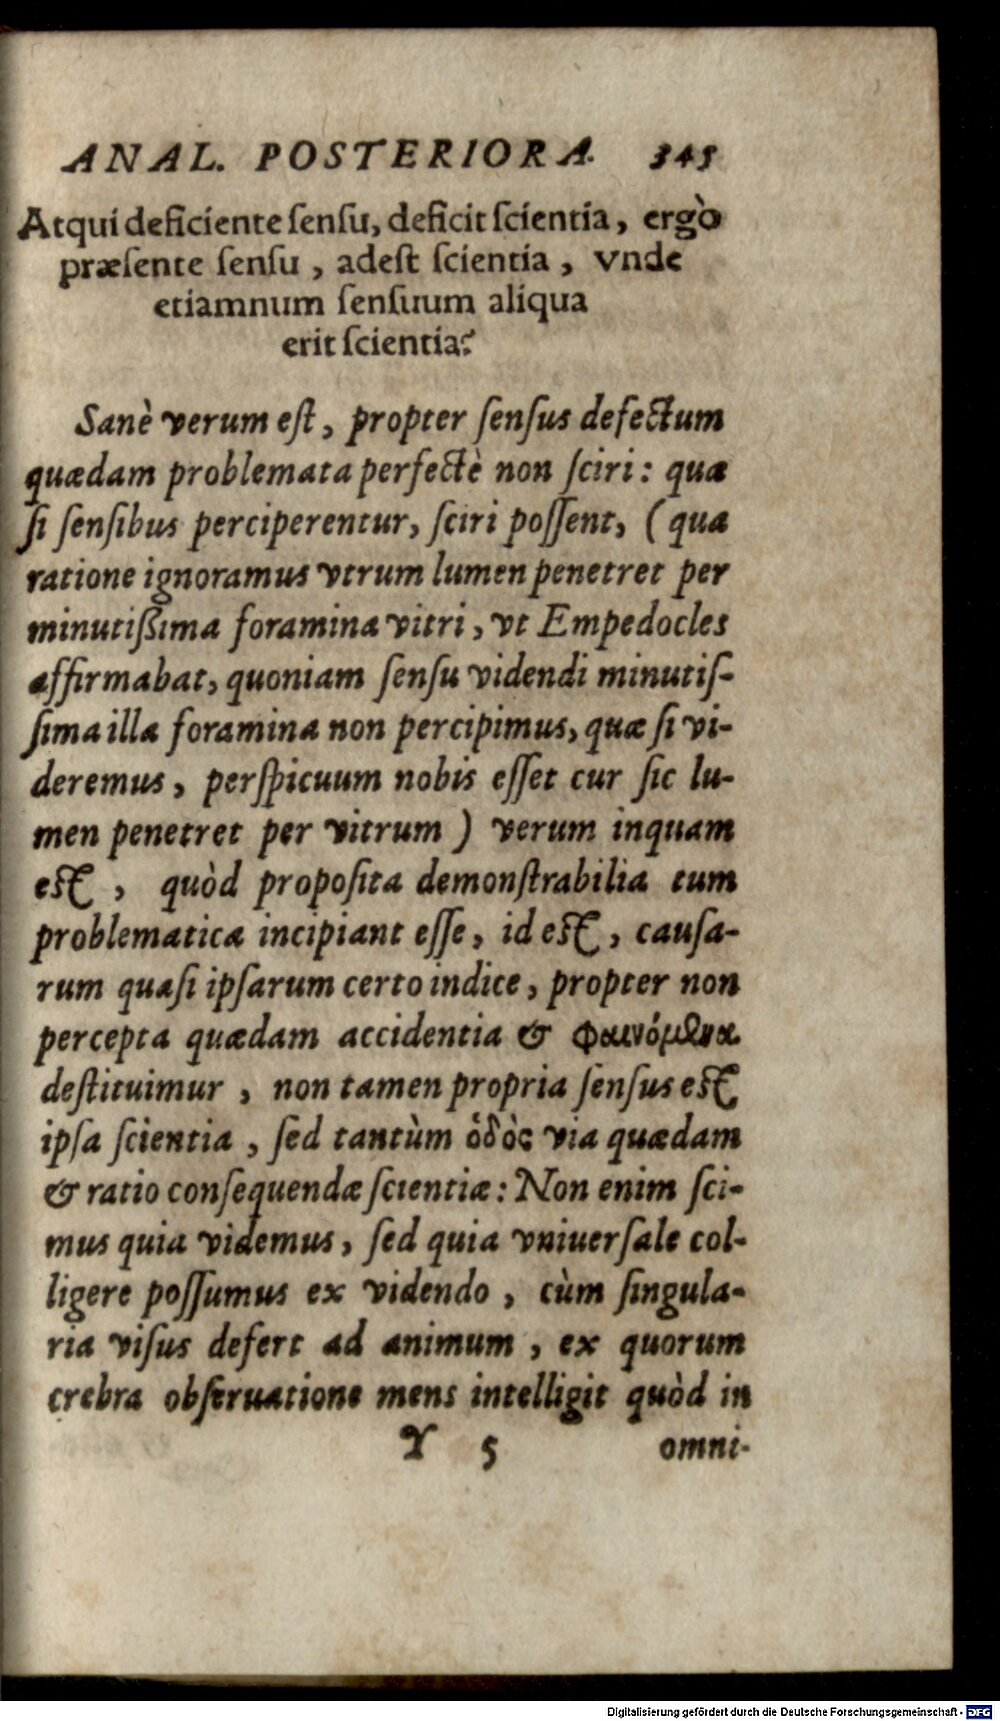 ANAL. POSTERIORA. 345
Atqui deficiente ſenſu, deficit ſcientia, ergò
præſente ſenſu, adeſt ſcientia, vnde
etiamnum ſenſuum aliqua
erit ſcientia?
Sanè verum eſt, propter ſenſus defectum
quædam problemata perfectè non ſciri: quæ
ſi ſenſibus perciperentur, ſciri poſſent, (qua
ratione ignoramus vtrum lumen penetret per
minutißima foramina vitri, vt Empedocles
affirmabat, quoniam ſenſu videndi minutiſ-
ſima illa foramina non percipimus, quæ ſi vi-
deremus, perſpicuum nobis eſſet cur ſic lu-
men penetret per vitrum) verum inquam
eſt, quòd propoſita demonſtrabilia tum
problematica incipiant eſſe, id eſt, cauſa-
rum quaſi ipſarum certo indice, propter non
percepta quædam accidentia & φαινόμενα
deſtituimur, non tamen propria ſenſus eſt
ipſa ſcientia, ſed tantùm ὁδὸς via quædam
& ratio conſequendæ ſcientiæ: Non enim ſci-
mus quia videmus, ſed quia vniuerſale col-
ligere poſſumus ex videndo, cùm ſingula-
ria viſus defert ad animum, ex quorum
crebra obſeruatione mens intelligit quòd in
Y 5 omni-
Digitalisierung gefördert durch die Deutsche Forschungsgemeinschaft - DFG